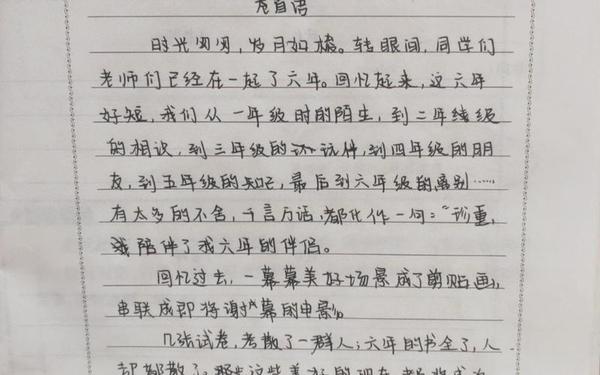 卷首语
时光匆匆，岁月如梭。转眼间，同学们
老师们已经在一起了六年。回忆起来，这六年
好短，我们从一年级时的陌生，到二年级
的相识，到三年级的玩伴，到四年级的朋
友，到五年级的知己，最后到六年级的离别……
有太多的不舍，千言万语，都化作一句：“珍重，
我陪伴了我六年的伴侣。
回忆过去，一幕幕美好场景成了剪贴画，
串联成即将谢幕的电影。
几张试卷，考散了一群人；六年的书全了，人
却都散了。那些这些美好的现在都将成为